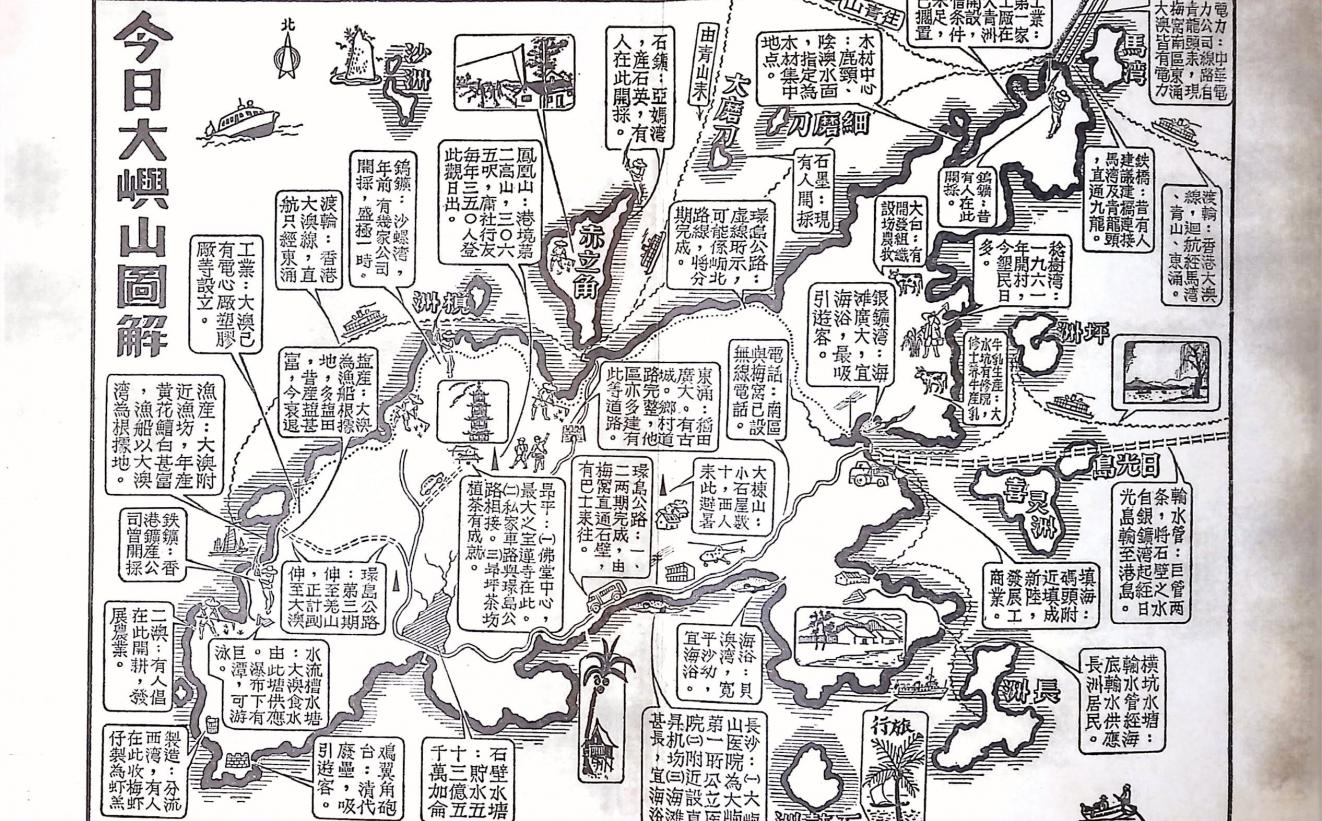 今日大嶼山圖解
北
沙洲
石鑛：亞媽湾
，產石英，有
人在此開採。
由青山來
大磨刀
木材中心
：鹿頸、
陰澳水面
，指定為
木材集中
地点。
細磨刀
往青山
工業：
第一家
工廠在
大青洲
開設，
惜条件
未足，
已擱置
馬湾
電力：中華電
力公司線路自
青龍頭來，現
梅窩南區東涌
大澳皆有電力
鳳凰山：港境第
二高山，三〇六
五呎，庸社行友
毎年三五〇人登
此觀日出。
鎢鑛：沙螺湾，
年前有幾家公司
開採，盛極一時。
渡輪：香港
大澳線，直
航只經東涌
工業：大澳已
有電心厰塑膠
厰等設立。
赤立角
石墨：現
有人開採
環島公路：
虛線所示，
可能係東北
路線，將分
期完成。
大白：有
開發組織
設坊農牧
鎢鑛：昔
有人在此
開採。
鉄橋：昔有人
建議建橋連接
馬湾及青龍頭
，直通九龍。
渡輪：香港大澳
線，迴航經馬湾
、青山、東涌。
稔樹湾：
一九六一
年開村，
今墾民日
多。
銀鑛湾：海
滩廣大，宜
海浴，最吸
引遊客。
坪洲
牛乳生産：大
水坑有修院，
修士养牛産乳
𥑮洲
盐産：大澳
為漁船根據
地，多塩田
，昔産塩甚
富，今衰退
漁産：大澳附
近漁坊，年産
黄花鱠白甚富
，漁船以大澳
湾為根據地。
東涌：稻田
廣大。有古
城。鄉村道
路完整，他
區亦多建有
此等道路。
電話：南區
與梅窩已設
無線電話。
日光島
喜灵洲
輸水管：巨管两
条，將石壁之水
自銀鑛湾起經日
光島輸至港島。
大棟山：
小石屋数
十，西人
來此避暑
環島公路：一、
二两期完成，由
梅窩直通石壁，
有巴士來往。
昻平：㈠佛堂中心，
最大之宝蓮寺在此。
㈡私家車路與環島公
路相接。㈢昻坪茶坊
植茶有成就。
鉄鑛：香
港鑛産公
司曾開採
環島公路
：第三期
伸至羗山
，正計劃
伸至大澳
填海：
碼頭附
近填成
新陸，
發展工
商業。
二澳：有人倡
在此開耕，發
展農業。
水流槽水塘
：大澳食水
由此塘供應
。瀑布下有
巨潭，可游
泳
海浴：貝
澳湾，寛
平沙幼，
宜海浴。
橫坑水塘：
輸水管經海
底輸水供應
長洲居民。
長洲
製造：分流
西湾，有人
在此收梅虾
仔製為虾羔
鸡翼角砲
台：清代
廢壘，吸
引遊客。
石壁水塘
：貯水五
十三億五
千萬加侖
長沙：㈠大嶼
山医院為大嶼
第一所公立医
院㈡附近設直
昇机坊㈢海滩
甚長，宜海浴
旅行